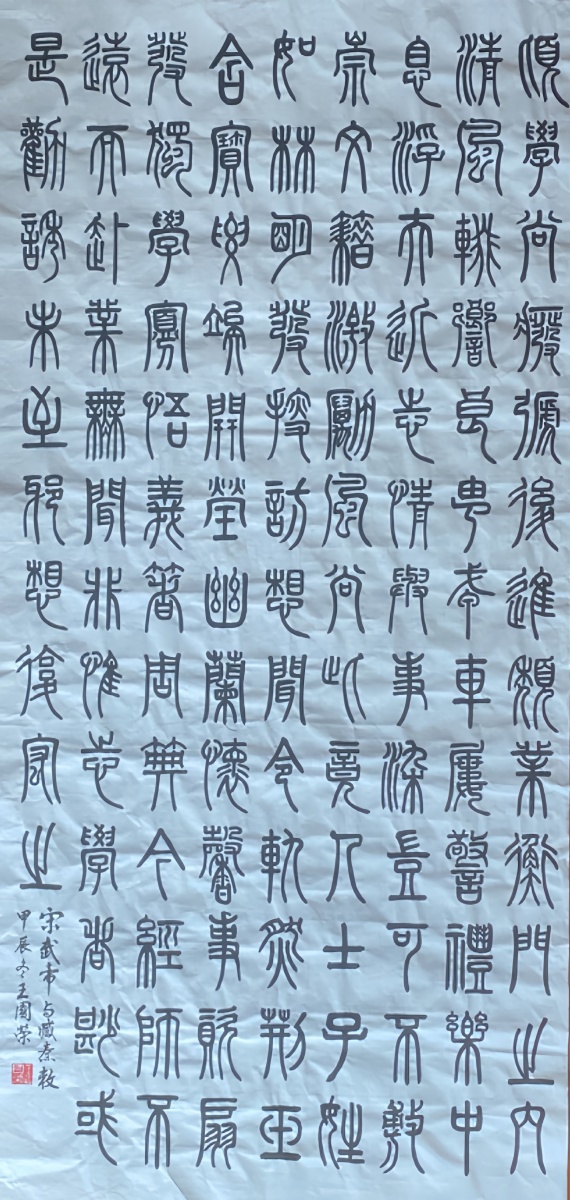 頃學尚廢弛後進頹業衡門之內
清風輟響良由戎車屢警禮樂中
息浮夫近志情與事染豈可不敷
崇文籍激勵風尚此竟人士子姪
如林明發搜訪想聞令軌然荆玉
含寶要端開瑩幽蘭懷馨事資扇
發獨學寡悟義著周典今經師不
遠而赴業無聞非惟志學者尠或
是勸誘未至邪想復宏之
宋武帝与臧燾敕
甲辰冬王國榮